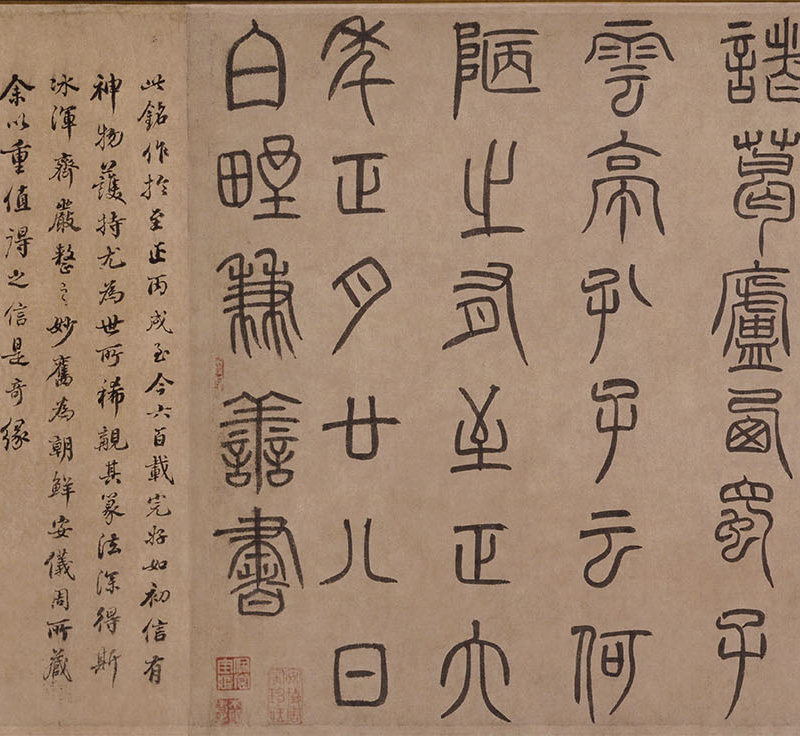 諸葛廬西蜀子
雲亭孔子云何
陋之有至正六
年正月廿八日
白野兼善書
此銘作於至正丙戌至今六百載完好如初信有
神物護持尤為世所稀覯其篆法深得斯
冰渾齊嚴整之妙舊為朝鮮安儀周所藏
余以重值得之信是奇緣